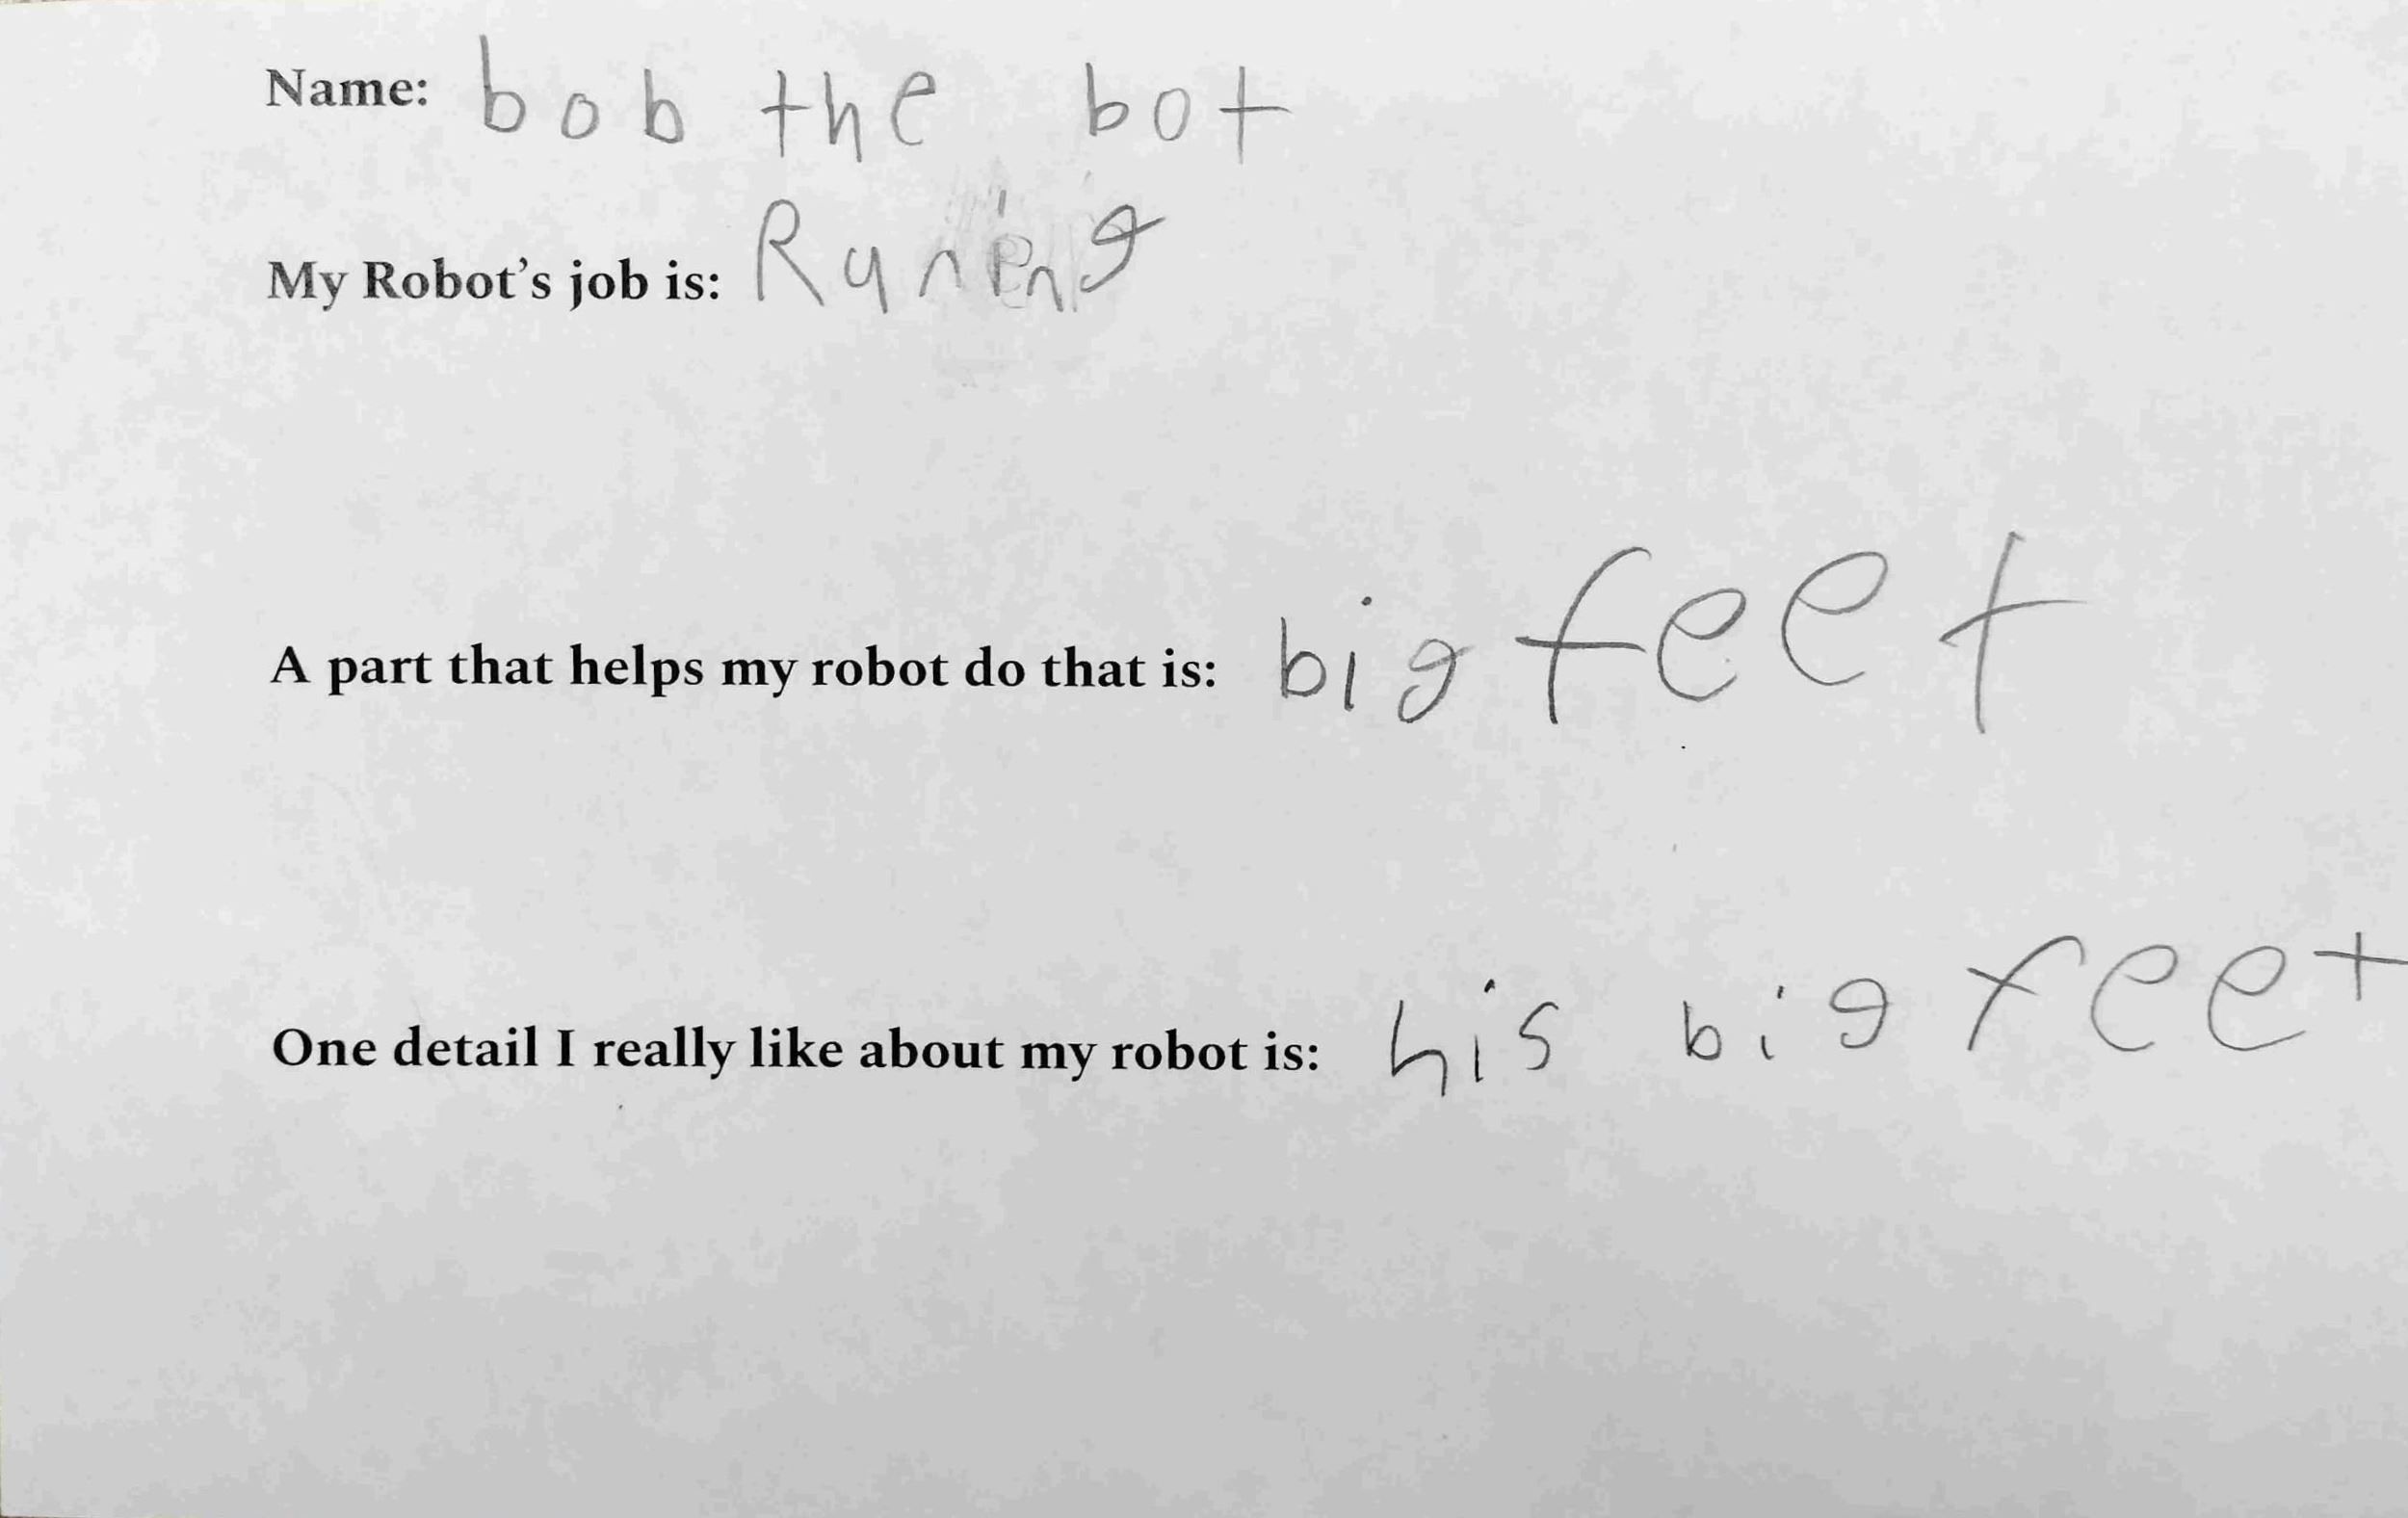 Name: bob the bot
My Robot's job is: Runing
A part that helps my robot do that is: big feet
One detail I really like about my robot is: his big feet